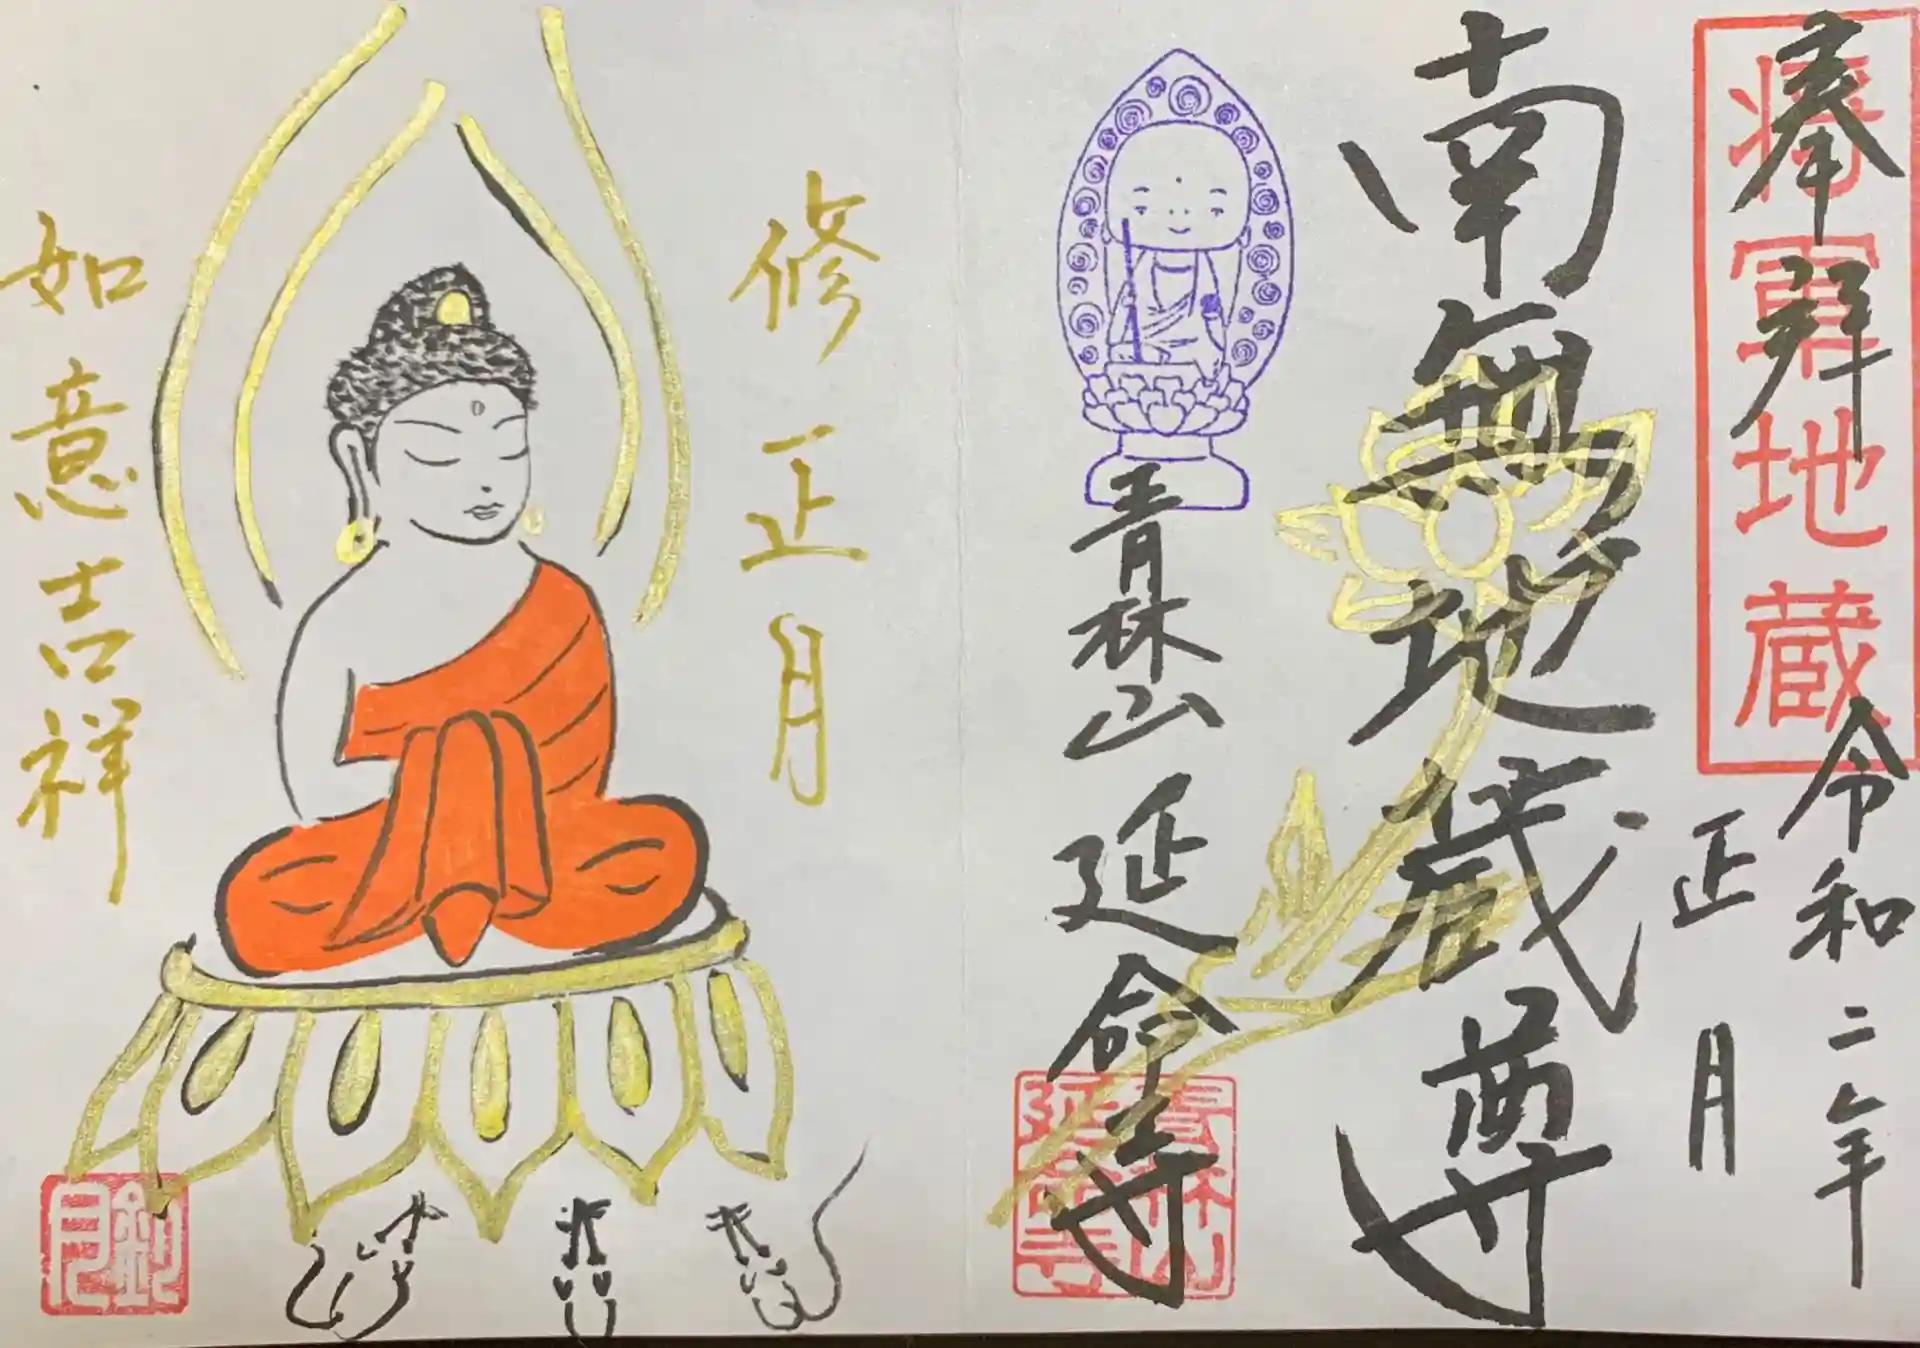 奉拝
将軍地蔵
令和二年
正月
南無地蔵尊
青林山
延命寺
青林山
延命寺
修正月
如意吉祥